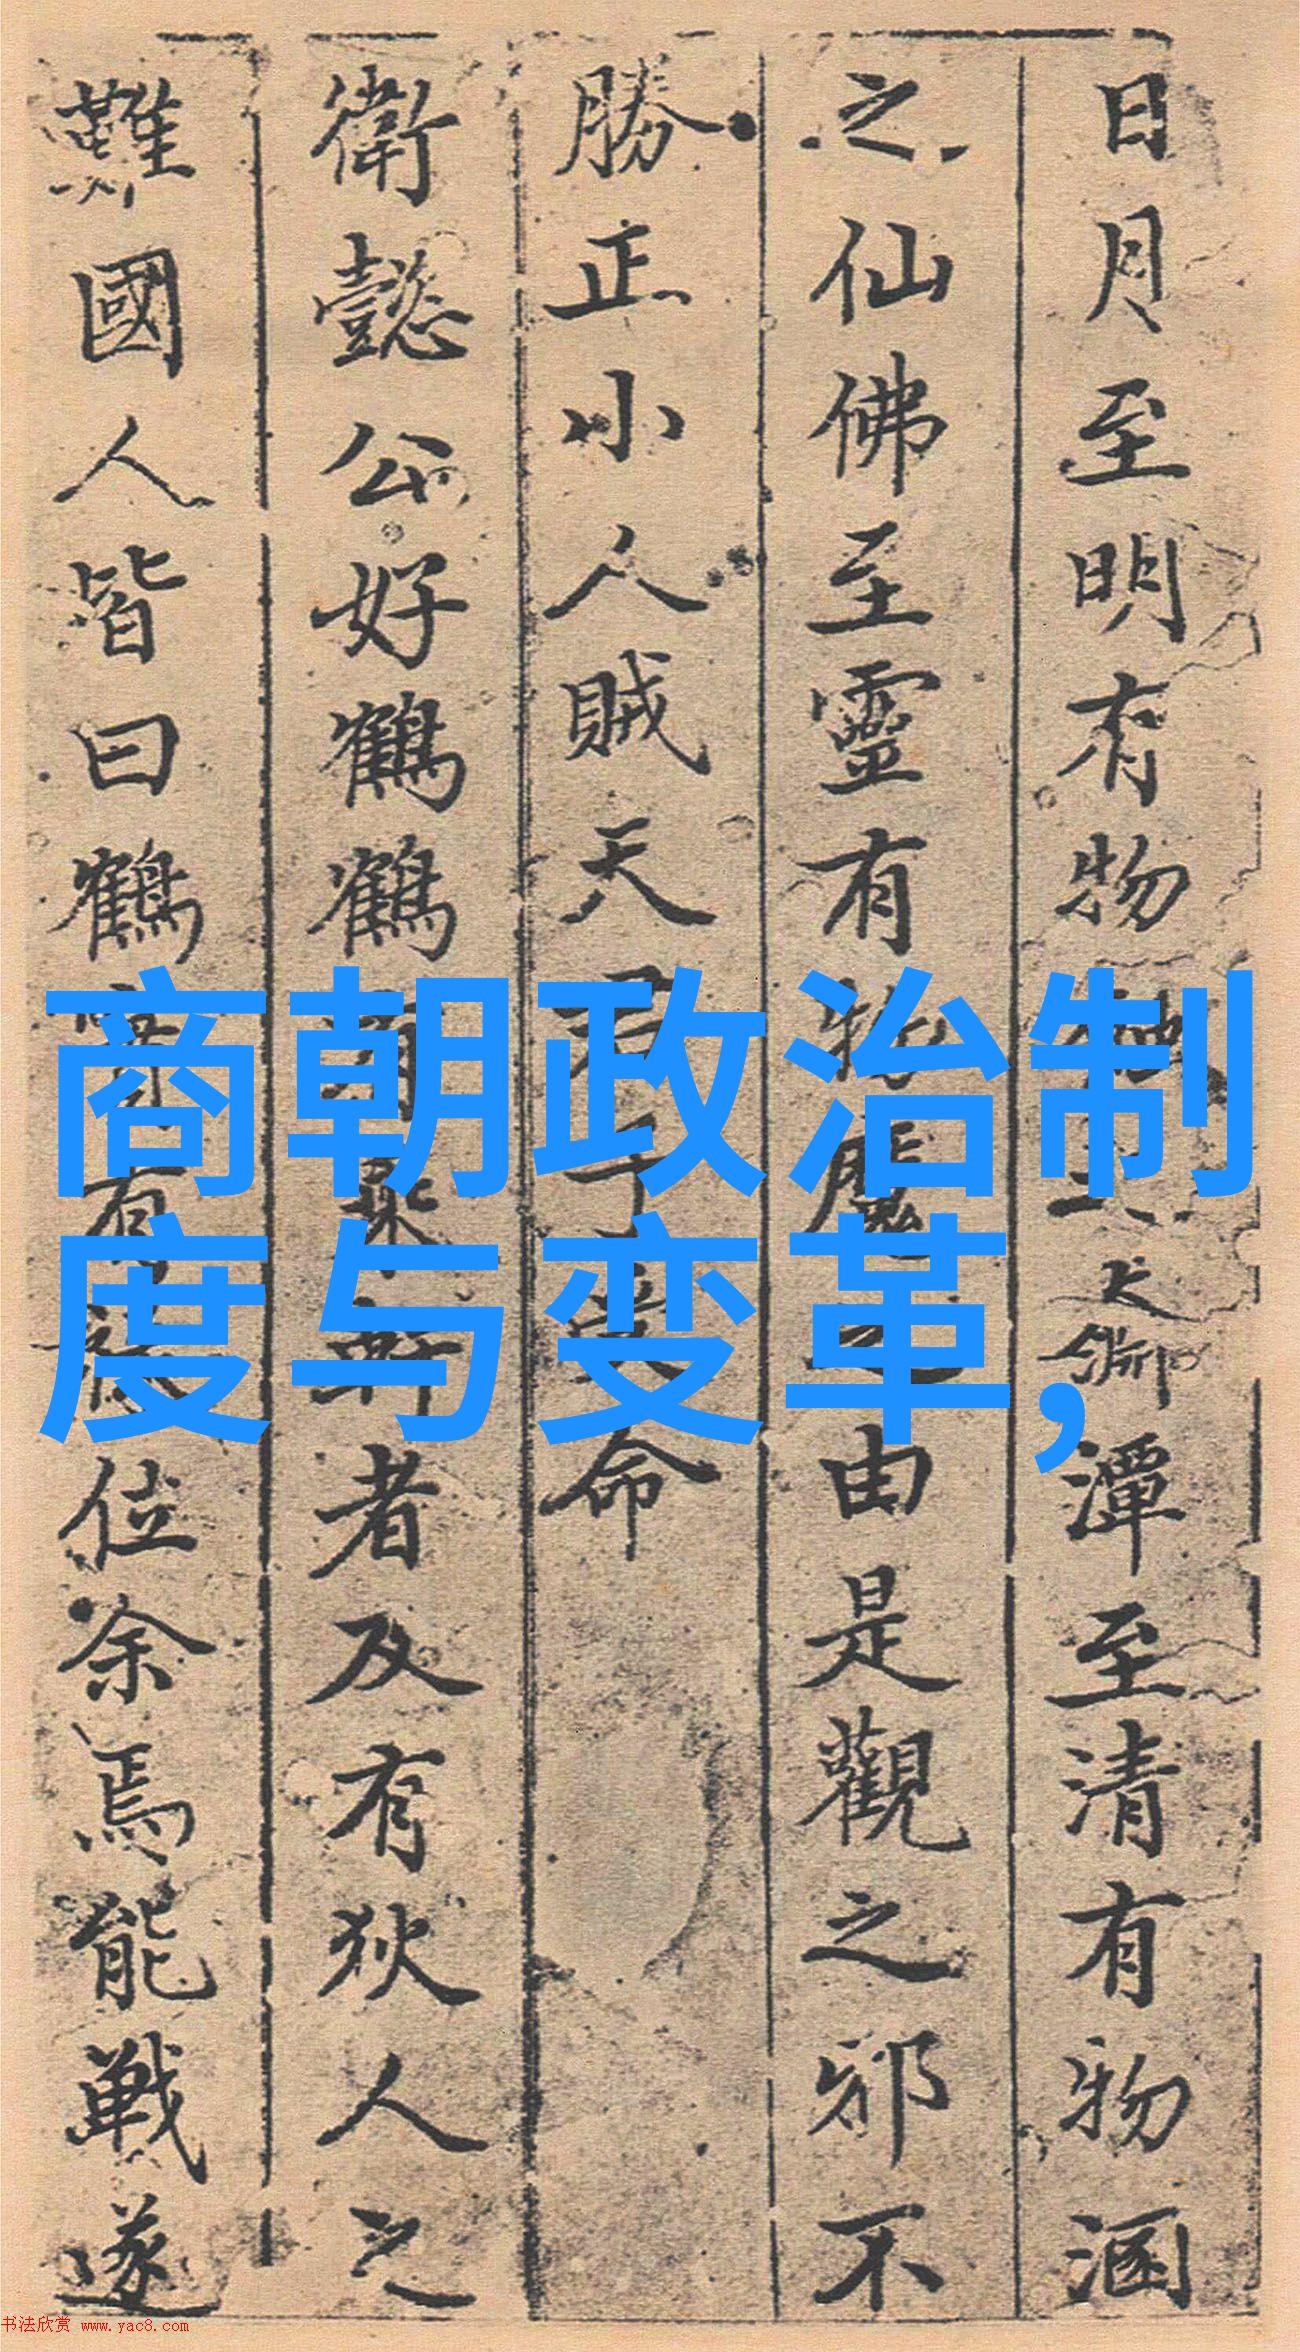 日月至明有物
潭至清有物涵
之仙佛至靈有
由是觀之邪不
勝正小人賊天
命
衛懿公好鶴鶴
者及有狄人之
難國人皆曰鶴
位余焉能戰遂
商朝政治制
度与变革,
书法欣赏 www.yac8.com